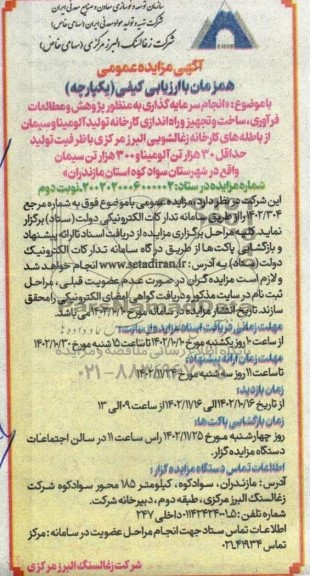 سازمان توسعه و نوسازی معادن و صنایع معدنی ایران
شرکت تهیه و تولید مواد معدنی ایران (سهامی خاص)
شرکت زغالسنگ البرز مرکزی (سهامی خاص)
آگهی مزایده عمومی
همزمان با ارزیابی کیفی (یکپارچه)
با موضوع: «انجام سرمایه گذاری به منظور پژوهش و مطالعات
فرآوری، ساخت و تجهیز و راه اندازی کارخانه تولید آلومینا و سیمان
از باطله های کارخانه زغالشویی البرز مرکزی با ظرفیت تولید
حداقل ۳۰ هزار تن آلومینا و ۳۰۰ هزار تن سیمان
واقع در شهرستان سوادکوه استان مازندران»
شماره مزایده در ستاد: ۲۰۰۲۰۲۰۰۰۶۰۰۰۰۰۲ نوبت دوم
این شرکت در نظر دارد، مزایده عمومی با موضوع فوق به شماره مرجع
۱۴۰۲/۳۰۴ را از طریق سامانه تدارکات الکترونیکی دولت (ستاد) برگزار
نماید. کلیه مراحل برگزاری مزایده از دریافت اسناد تا ارائه پیشنهاد
و بازگشایی پاکت‌ها از طریق درگاه سامانه تدارکات الکترونیک
دولت (ستاد) به آدرس: www.setadiran.ir انجام خواهد شد
و لازم است مزایده گران در صورت عدم عضویت قبلی، مراحل
ثبت نام در سایت مذکور و دریافت گواهی امضای الکترونیکی را محقق
سازند. تاریخ انتشار مزایده در سامانه مورخ ۱۴۰۲/۱۰/۱۰ می باشد.
مهلت زمانی دریافت اسناد مزایده از سایت:
از ساعت ۱۰ روز یکشنبه مورخ ۱۴۰۲/۱۰/۱۰ تا ساعت ۱۵ شنبه مورخ ۱۴۰۲/۱۰/۳۰
مهلت زمان ارائه پیشنهاد:
تا ساعت ۱۱ روز سه شنبه مورخ ۱۴۰۲/۱۱/۲۴
زمان بازدید:
از تاریخ ۱۴۰۲/۱۰/۱۶ الی ۱۴۰۲/۱۱/۱۶ از ساعت ۰۹ الی ۱۳
زمان بازگشایی پاکت ها:
روز چهارشنبه مورخ ۱۴۰۲/۱۱/۲۵ راس ساعت ۱۱ در سالن اجتماعات
دستگاه مزایده گزار.
اطلاعات تماس دستگاه مزایده گزار:
آدرس: مازندران، سوادکوه، کیلومتر ۱۸۵ محور سوادکوه شرکت
زغالسنگ البرز مرکزی، طبقه دوم، دبیرخانه شرکت.
شماره تلفن: ۵-۰۱۱۴۲۴۲۴۰۰۱ داخلی ۲۴۷
اطلاعات تماس ستاد جهت انجام مراحل عضویت در سامانه: مرکز
تماس ۰۲۱-۴۱۹۳۴
شرکت زغالسنگ البرز مرکزی